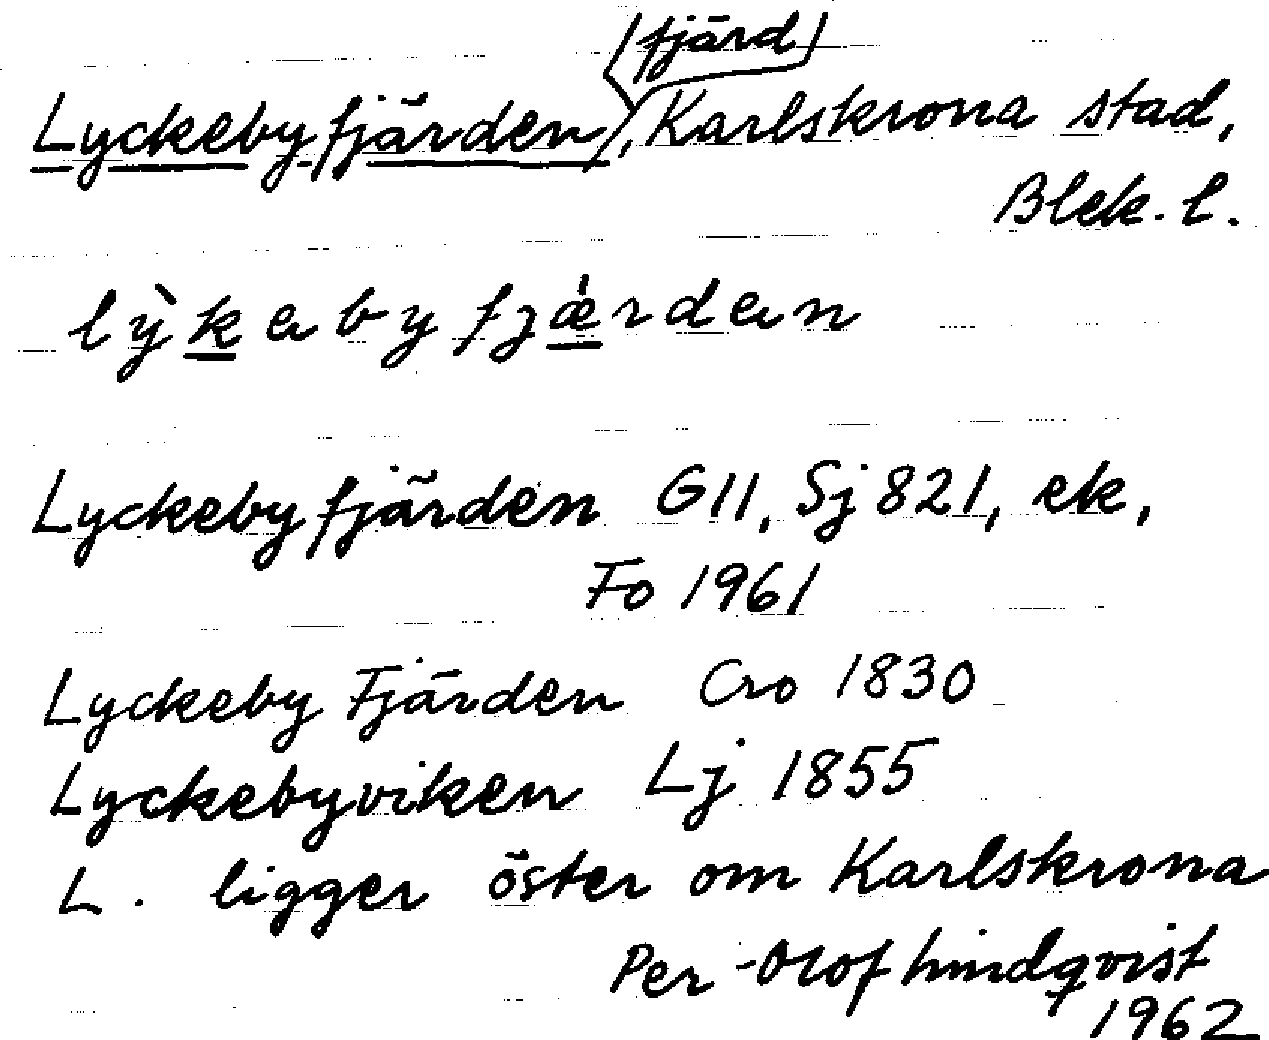 (fjärd)
Lyckebyfjärden, Karlskrona stad,
Blek. l.
lỳkabyfjæ̍rdan
Lyckebyfjärden G11, Sj 821, ek,
Fo 1961
Lyckeby Fjärden Cro 1830
Lyckebyviken Lj 1855
L. ligger öster om Karlskrona
Per-Olof Lindqvist
1962